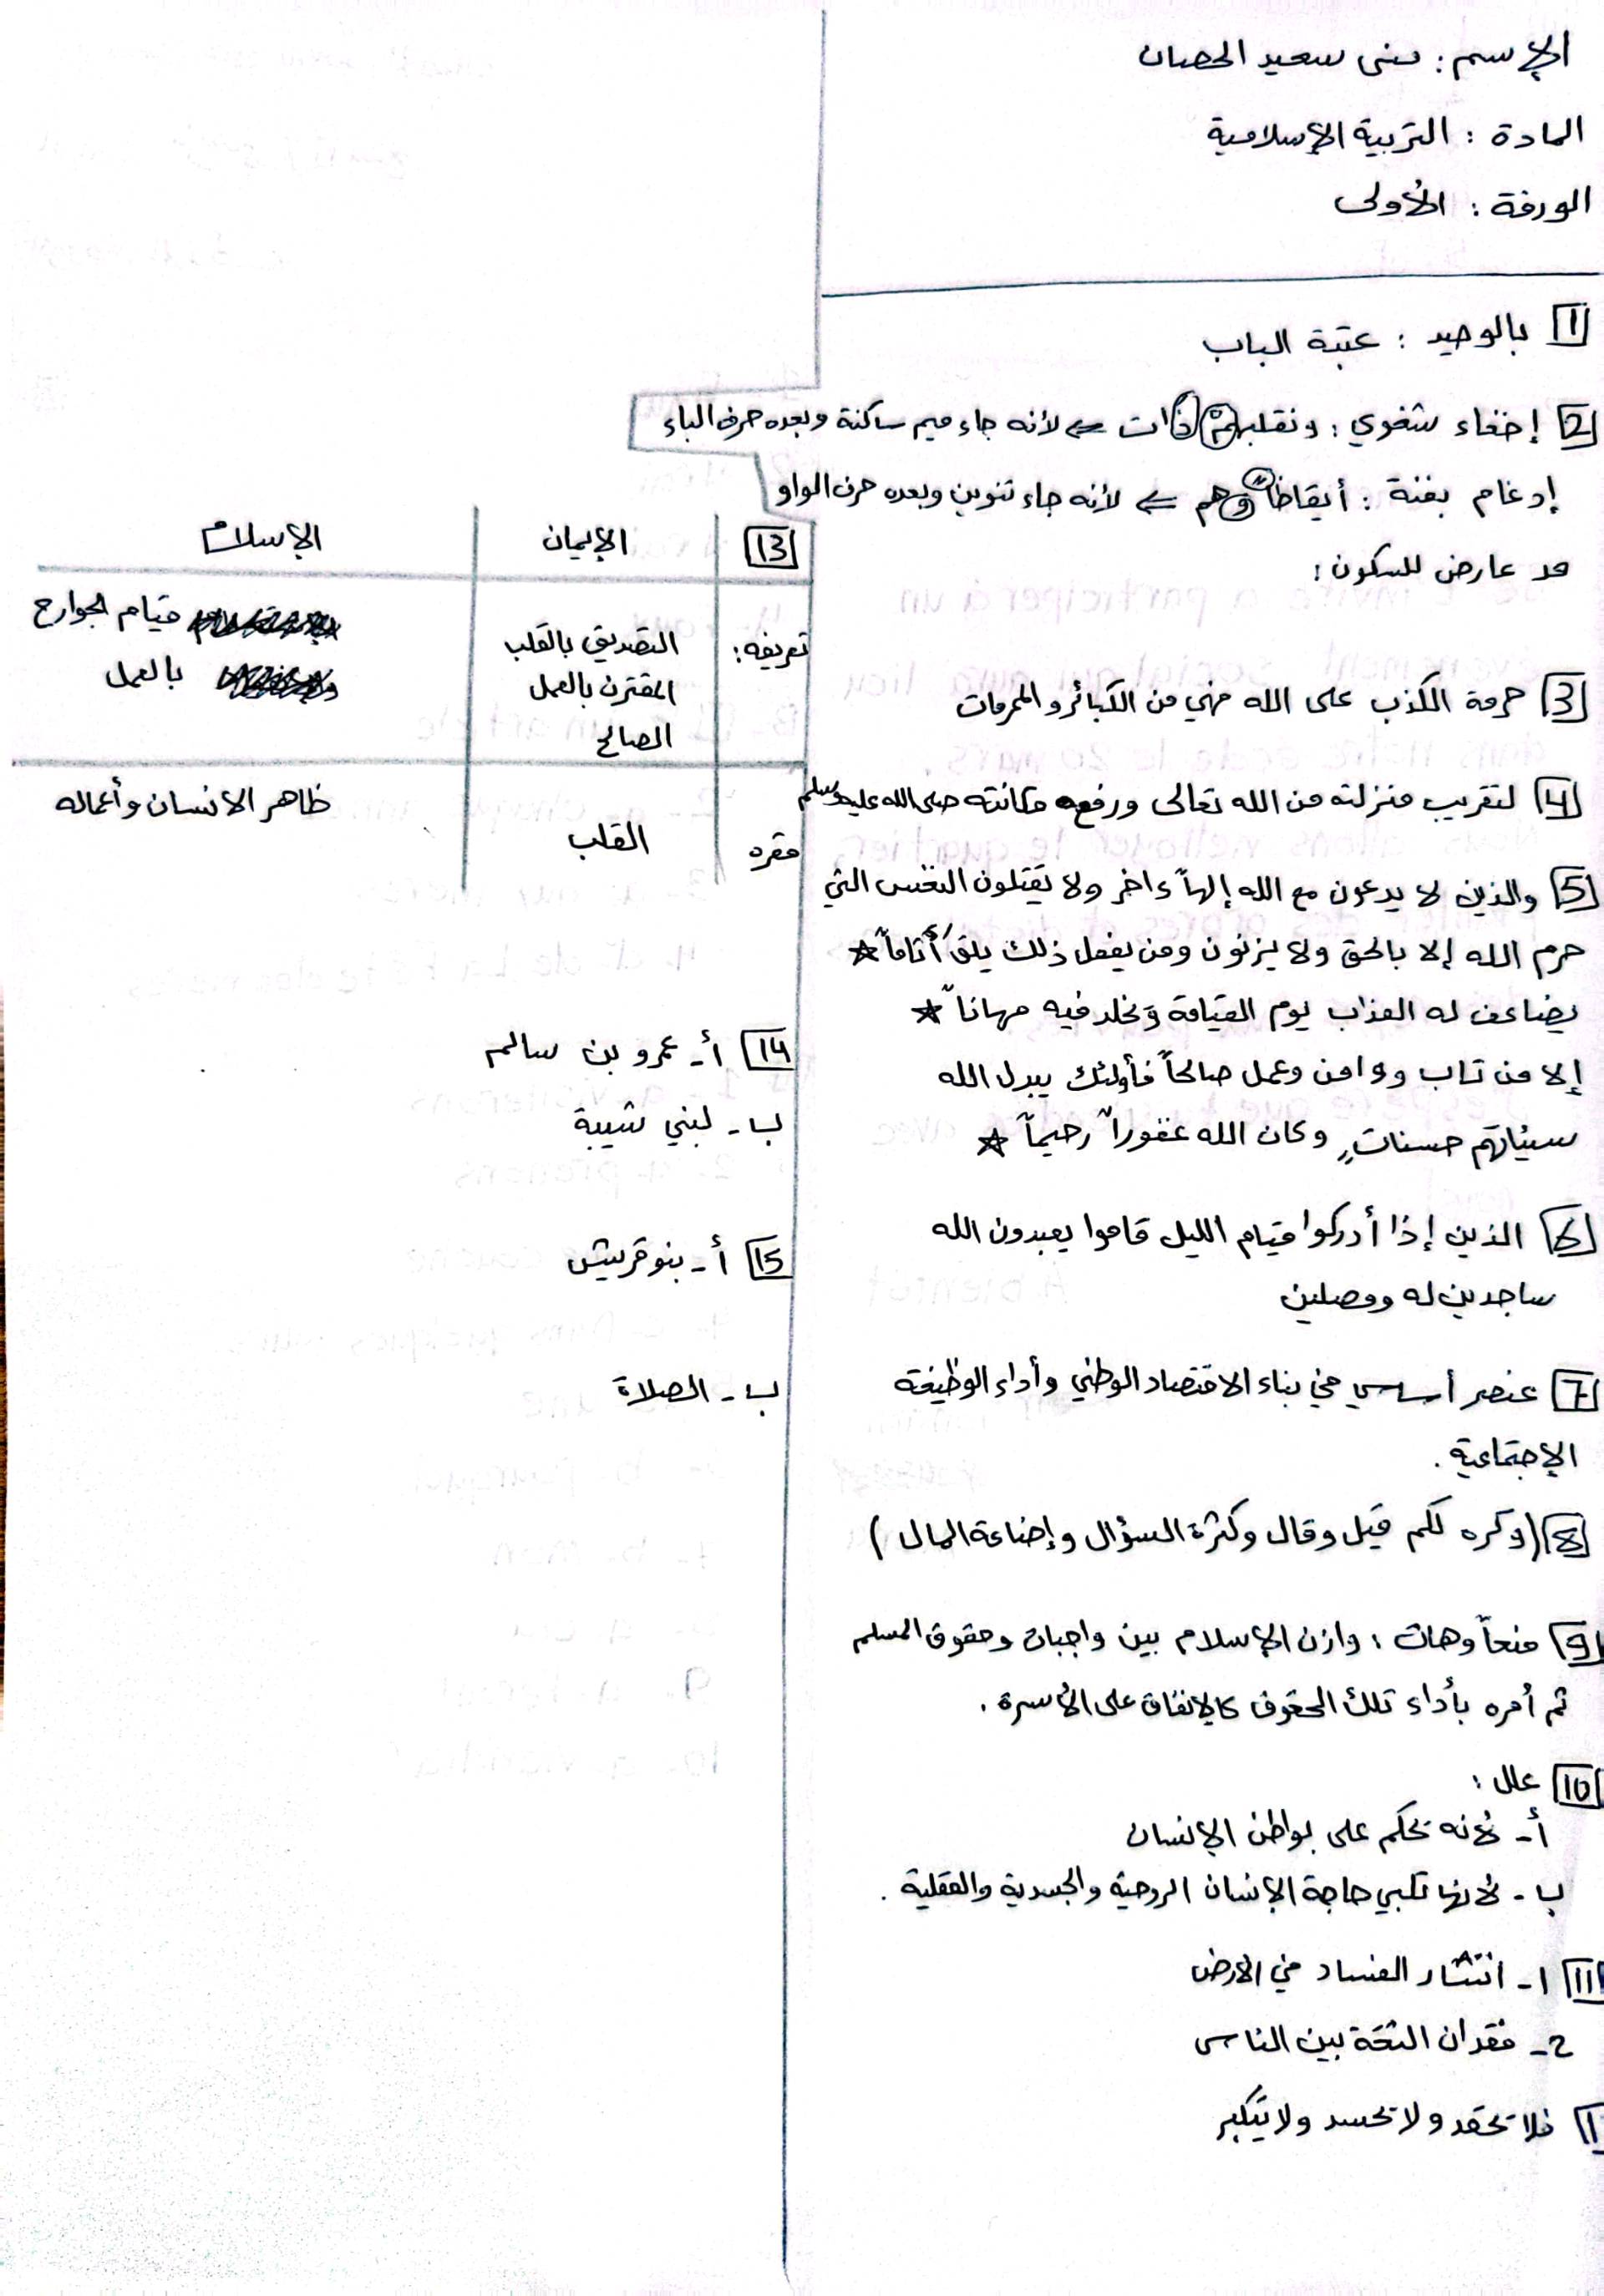 الإسم : منى سعيد الحصان
المادة : التربية الإسلامية
الورقة : الأولى
1 بالوصيد : عتبة الباب
2 إخفاء شفوي : ونقلبهم ذات ⇐ لأنه جاء ميم ساكنة وبعده حرف الباء
إدغام بغنة : أيقاظاً وهم ⇐ لأنه جاء تنوين وبعده حرف الواو
مد عارض للسكون :
3 حرمة الكذب على الله فهي من الكبائر والمحرمات
4 لتقريب منزلته من الله تعالى ورفع مكانته صلى الله عليه وسلم
5 والذين لا يدعون مع الله إلهاً ءاخر ولا يقتلون النفس التي
حرم الله إلا بالحق ولا يزنون ومن يفعل ذلك يلق أثاماً ☆
يضاعف له العذاب يوم القيامة ويخلد فيه مهاناً ☆
إلا من تاب وءامن وعمل صالحاً فأولئك يبدل الله
سيئاتهم حسناتٍ وكان الله غفوراً رحيماً ☆
6 الذين إذا أدركوا قيام الليل قاموا يعبدون الله
ساجدين له ومصلين
7 عنصر أساسي في بناء الاقتصاد الوطني وأداء الوظيفة
الإجتماعية .
8 (وكره لكم قيل وقال وكثرة السؤال وإضاعة المال )
9 منعاً وهات : وازن الإسلام بين واجبات وحقوق المسلم
ثم أمره بأداء تلك الحقوق كالإنفاق على الأسرة .
10 علل :
أ- لأنه تحكم على بواطن الإنسان
ب- لأنها تلبي حاجة الإنسان الروحية والجسدية والعقلية .
11 1- انتشار الفساد في الأرض
2- فقدان الثقة بين الناس
1 فلا تحقد ولا تحسد ولا يتكبر
13 الإيمان الإسلام
تعريفه : التصديق بالقلب قيام الجوارح
المقترن بالعمل بالعمل
الصالح
مقره القلب ظاهر الانسان وأعماله
14 أ- عمرو بن سالم
ب- لبني شيبة
15 أ- بنو قريش
ب- الصلاة